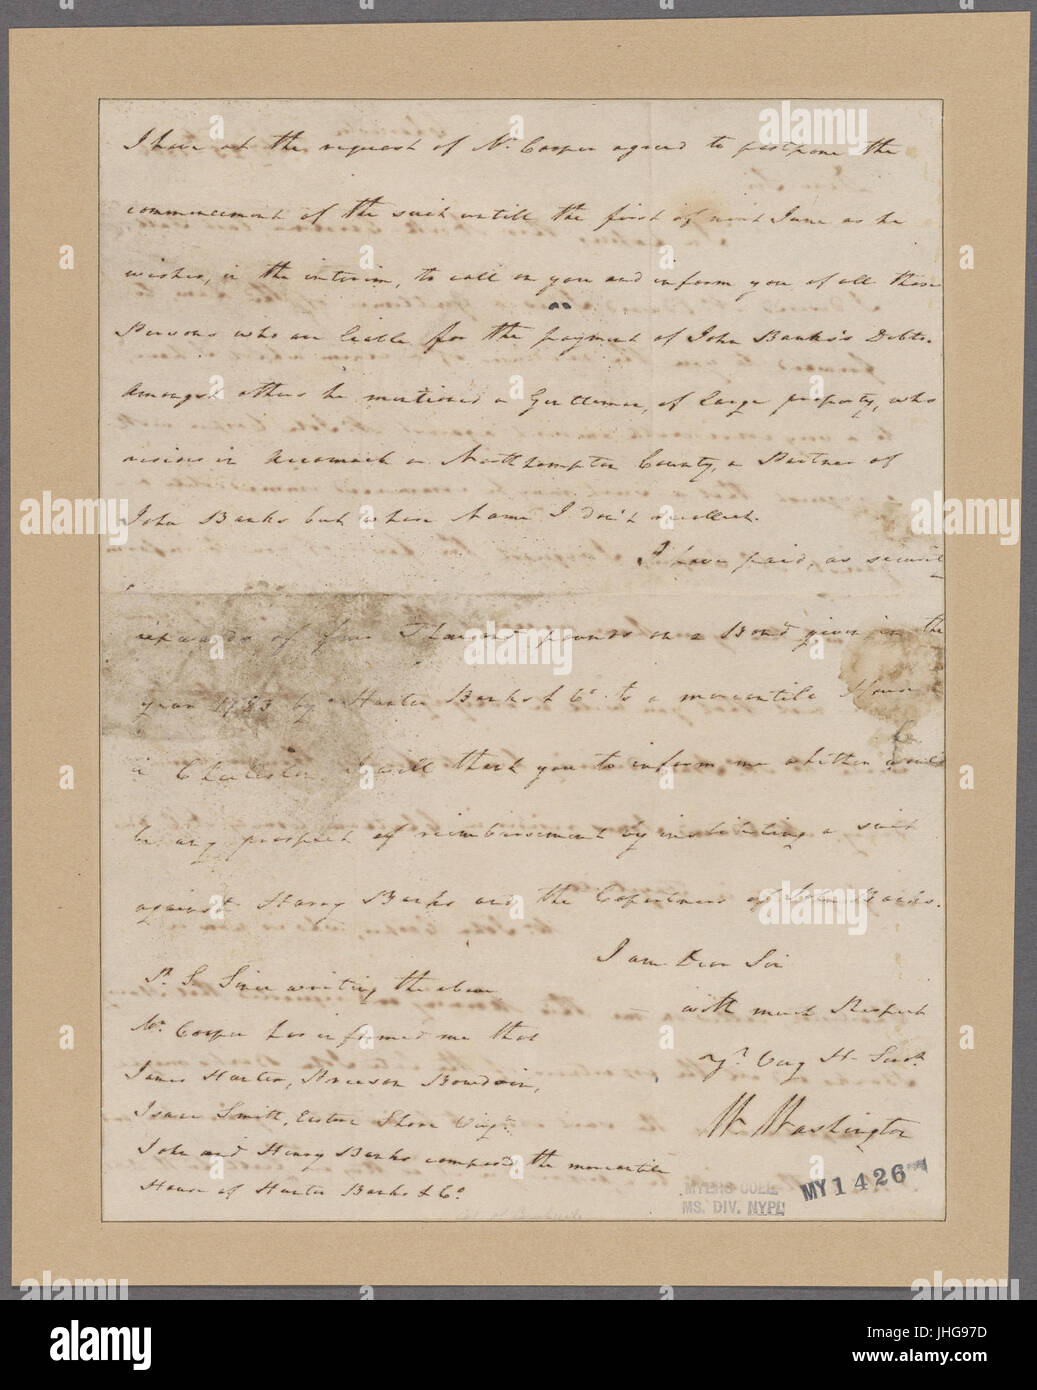 I have at the request of Mr. Cooper agreed to postpone the
commencement of the suit untill the first of next June as he
wishes, in the interim, to call on you and inform you of all those
Persons who are liable for the payment of John Banks's Debts.
Amongst others he mentioned a Gentleman, of large property, who
resides in Accomack or Northampton County, a Partner of
John Banks but whose Name I don't recollect.
I have paid, as securit
upwards of five Thousand pounds on a Bond given in the
year 1783 by Hunter Banks & Co. to a mercantile House
in Charleston. I will thank you to inform me whither would
be any prospect of reimbursement by instituting a suit
against Harry Banks and the Copartners of John Banks.
I am Dear Sir
with much Respect
yr. Very H. Servt.
W. Washington
P. S. Since writing the above
Mr. Cooper has informed me that
James Hunter, Bowdoin,
Isaac Smith, Eastern Shore Virga.
John and Henry Banks composed the mercantile
House of Hunter Banks & Co.
MYERS COLL.
MS. DIV. NYPL
MY 1426
alamy stock photo
alamy
Image ID: JHG97D
www.alamy.com